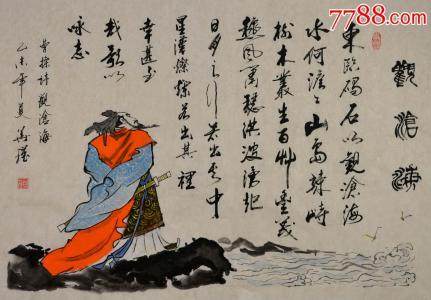 7788.com
觀滄海
東臨碣石以觀滄海
水何澹〻山島竦峙
樹木叢生百艸豐茂
秋風蕭瑟洪波湧起
日月之行若出其中
星漢燦爛若出其裡
幸甚至
哉歌以
咏志
曹操詩觀滄海
乙未年夏